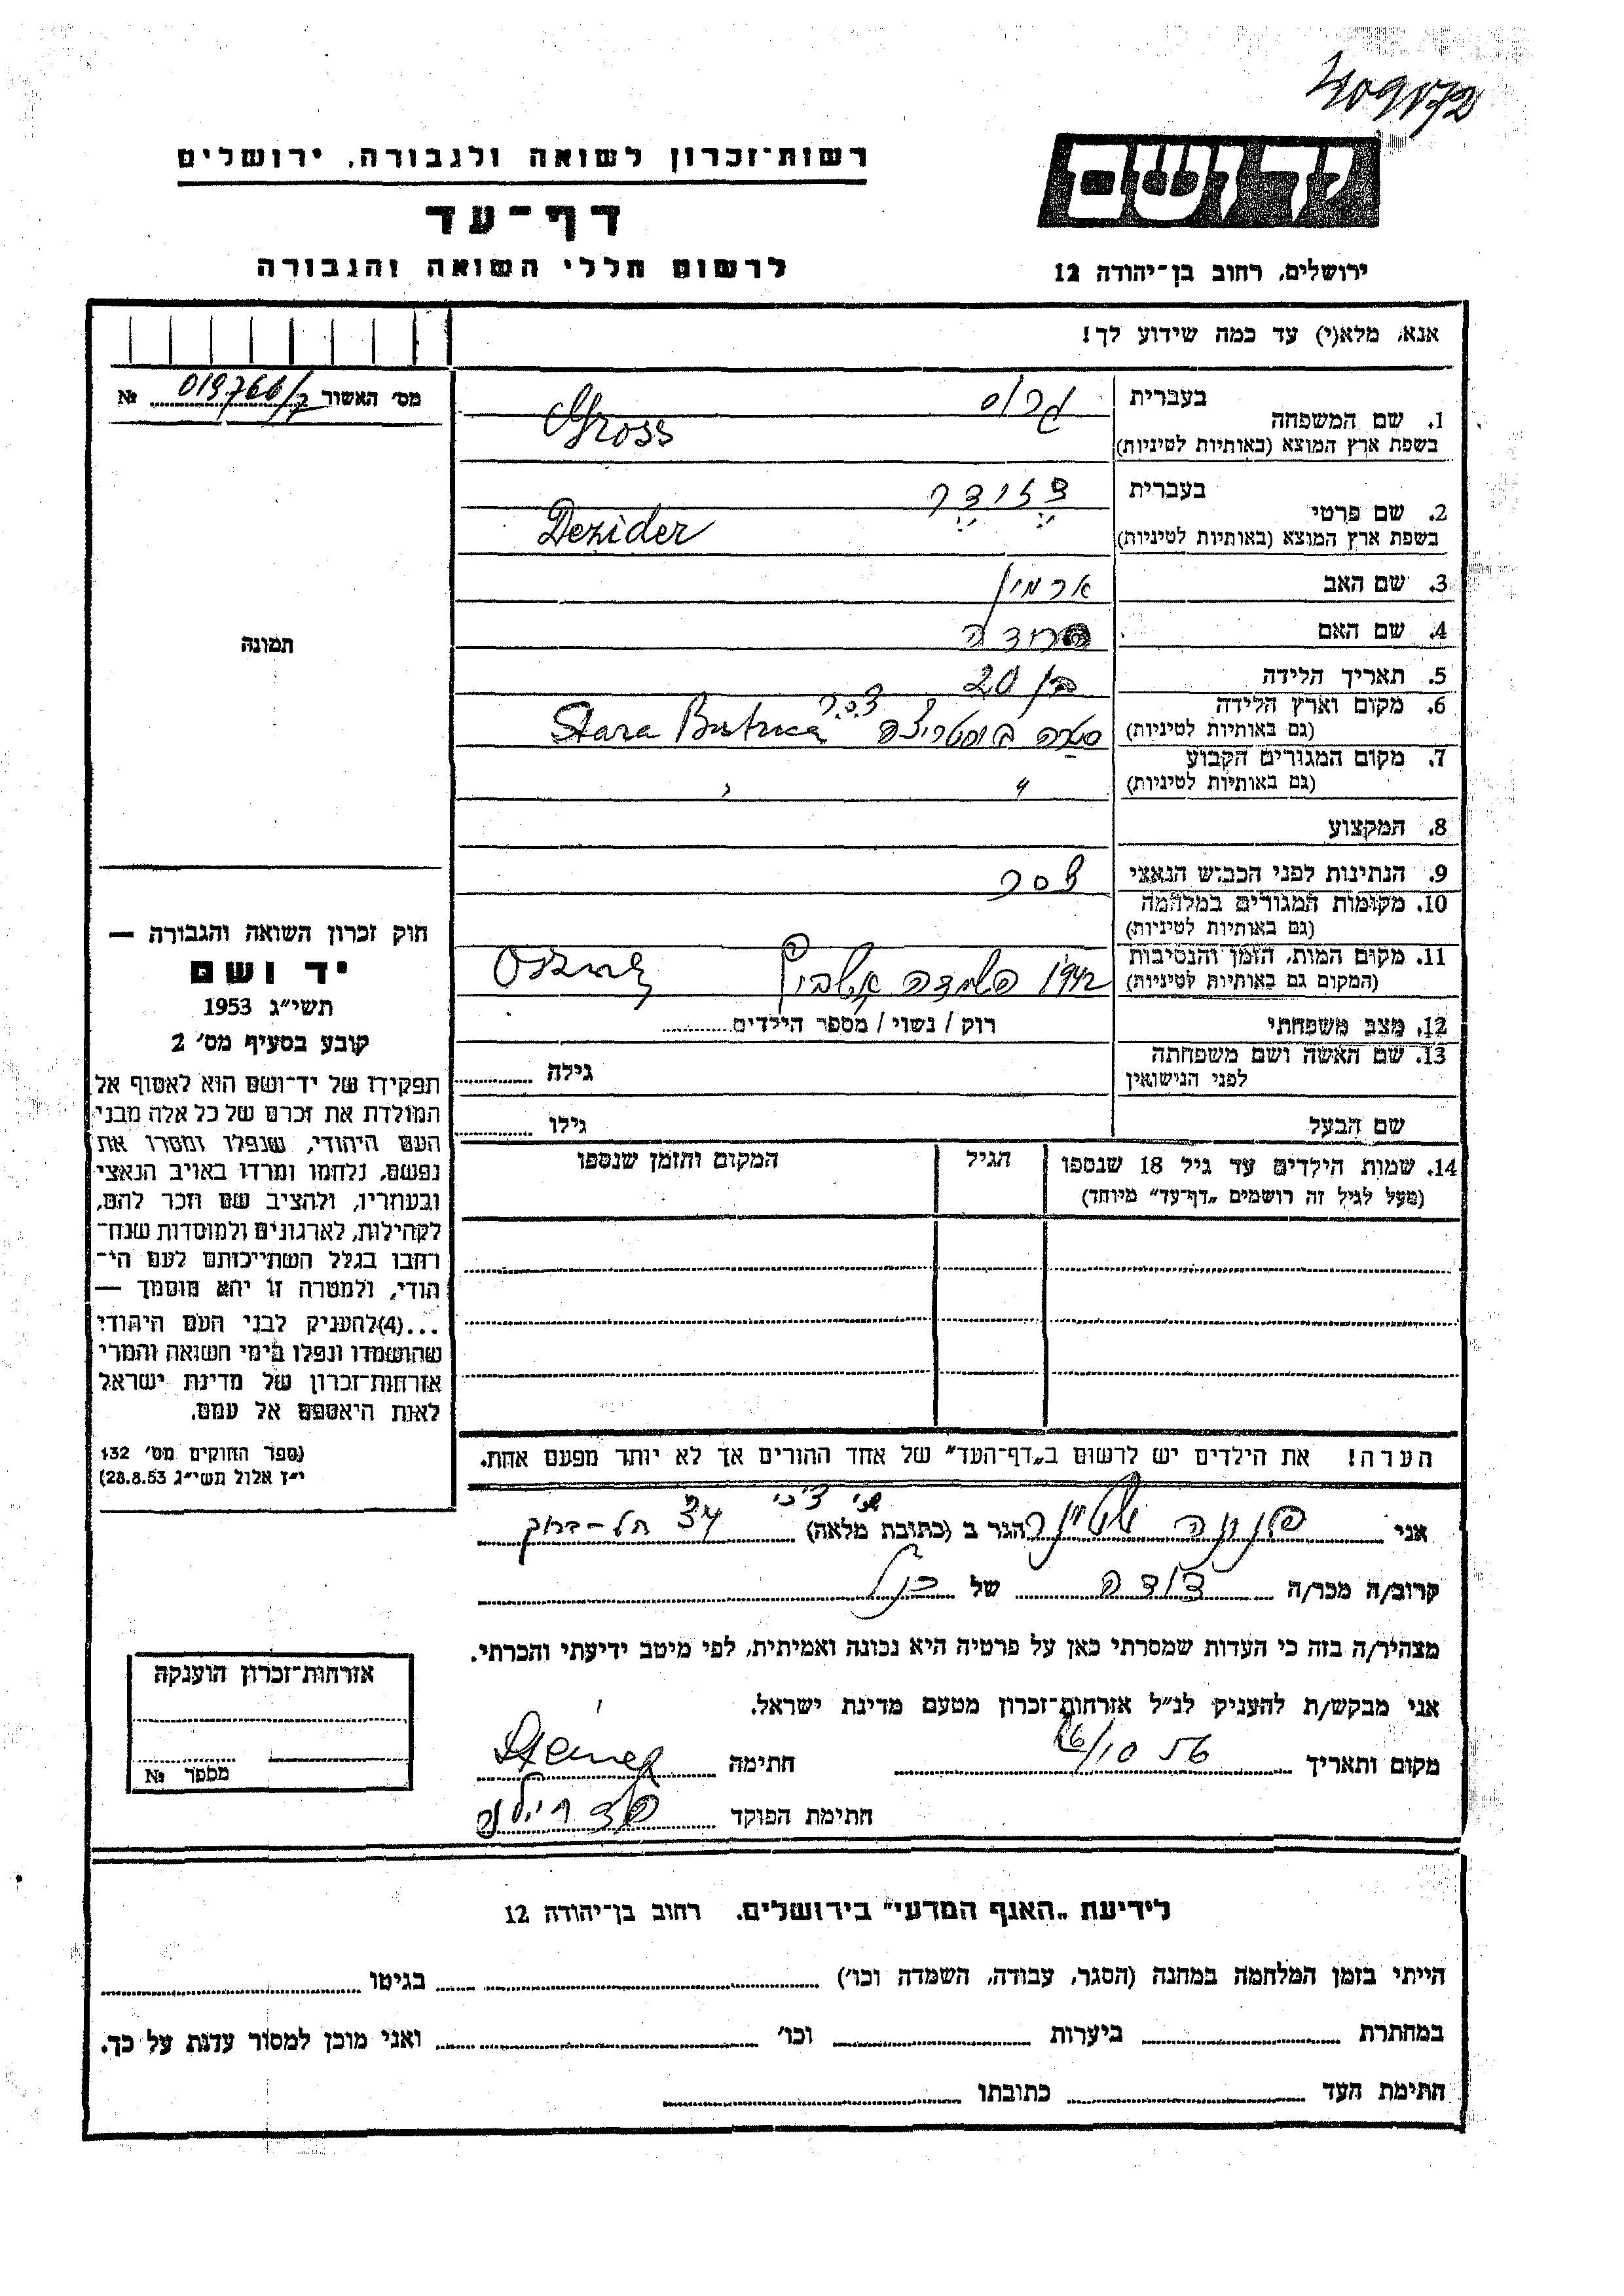 רשות־זכרון לשואה ולגבורה, ירושלים
יד ושם
דף־עד
לרשום חללי השואה והגבורה
ירושלים, רחוב בן־יהודה 12
אנא, מלא(י) עד כמה שידוע לך!
מס׳ האשור № 019766/
בעברית גרוס
1. שם המשפחה
בשפת ארץ המוצא (באותיות לטיניות) Gross
בעברית דזידר
2. שם פרטי
בשפת ארץ המוצא (באותיות לטיניות) Dezider
3. שם האב ארמין
4. שם האם
תמונה
5. תאריך הלידה בן 20
6. מקום וארץ הלידה צ.ס.ר
(גם באותיות לטיניות) סטרה ביסטריצה Stara Bistrica
7. מקום המגורים הקבוע
(גם באותיות לטיניות) " "
8. המקצוע
9. הנתינות לפני הכבוש הנאצי צסר
10. מקומות המגורים במלחמה
(גם באותיות לטיניות)
11. מקום המות, הזמן והנסיבות
(המקום גם באותיות לטיניות) 1942
12. מצב משפחתי רוק / נשוי / מספר הילדים
13. שם האשה ושם משפחתה
לפני הנישואין גילה
שם הבעל גילו
14. שמות הילדים עד גיל 18 שנספו הגיל המקום והזמן שנספו
(מעל לגיל זה רושמים „דף־עד” מיוחד)
חוק זכרון השואה והגבורה —
יד ושם
תשי״ג 1953
קובע בסעיף מס׳ 2
תפקידו של יד־ושם הוא לאסוף אל
המולדת את זכרם של כל אלה מבני
העם היהודי, שנפלו ומסרו את
נפשם, נלחמו ומרדו באויב הנאצי
ובעוזריו, ולהציב שם וזכר להם,
לקהילות, לארגונים ולמוסדות שנח־
רבו בגלל השתייכותם לעם הי־
הודי, ולמטרה זו יהא מוסמך —
...(4)להעניק לבני העם היהודי
שהושמדו ונפלו בימי השואה והמרי
אזרחות־זכרון של מדינת ישראל
לאות היאספם אל עמם.
(ספר החוקים מס׳ 132
י״ז אלול תשי״ג 28.8.53)
הערה! את הילדים יש לרשום ב„דף־העד” של אחד ההורים אך לא יותר מפעם אחת.
אני הגר ב (כתובת מלאה)
קרוב/ה מכר/ה דודה של
מצהיר/ה בזה כי העדות שמסרתי כאן על פרטיה היא נכונה ואמיתית, לפי מיטב ידיעתי והכרתי.
אני מבקש/ת להעניק לנ״ל אזרחות־זכרון מטעם מדינת ישראל.
מקום ותאריך 16/10 56 חתימה
חתימת הפוקד
אזרחות־זכרון הוענקה
מספר №
לידיעת „האגף המדעי” בירושלים, רחוב בן־יהודה 12
הייתי בזמן המלחמה במחנה (הסגר, עבודה, השמדה וכו׳) בגיטו
במחתרת ביערות וכו׳ ואני מוכן למסור עדות על כך.
חתימת העד כתובתו